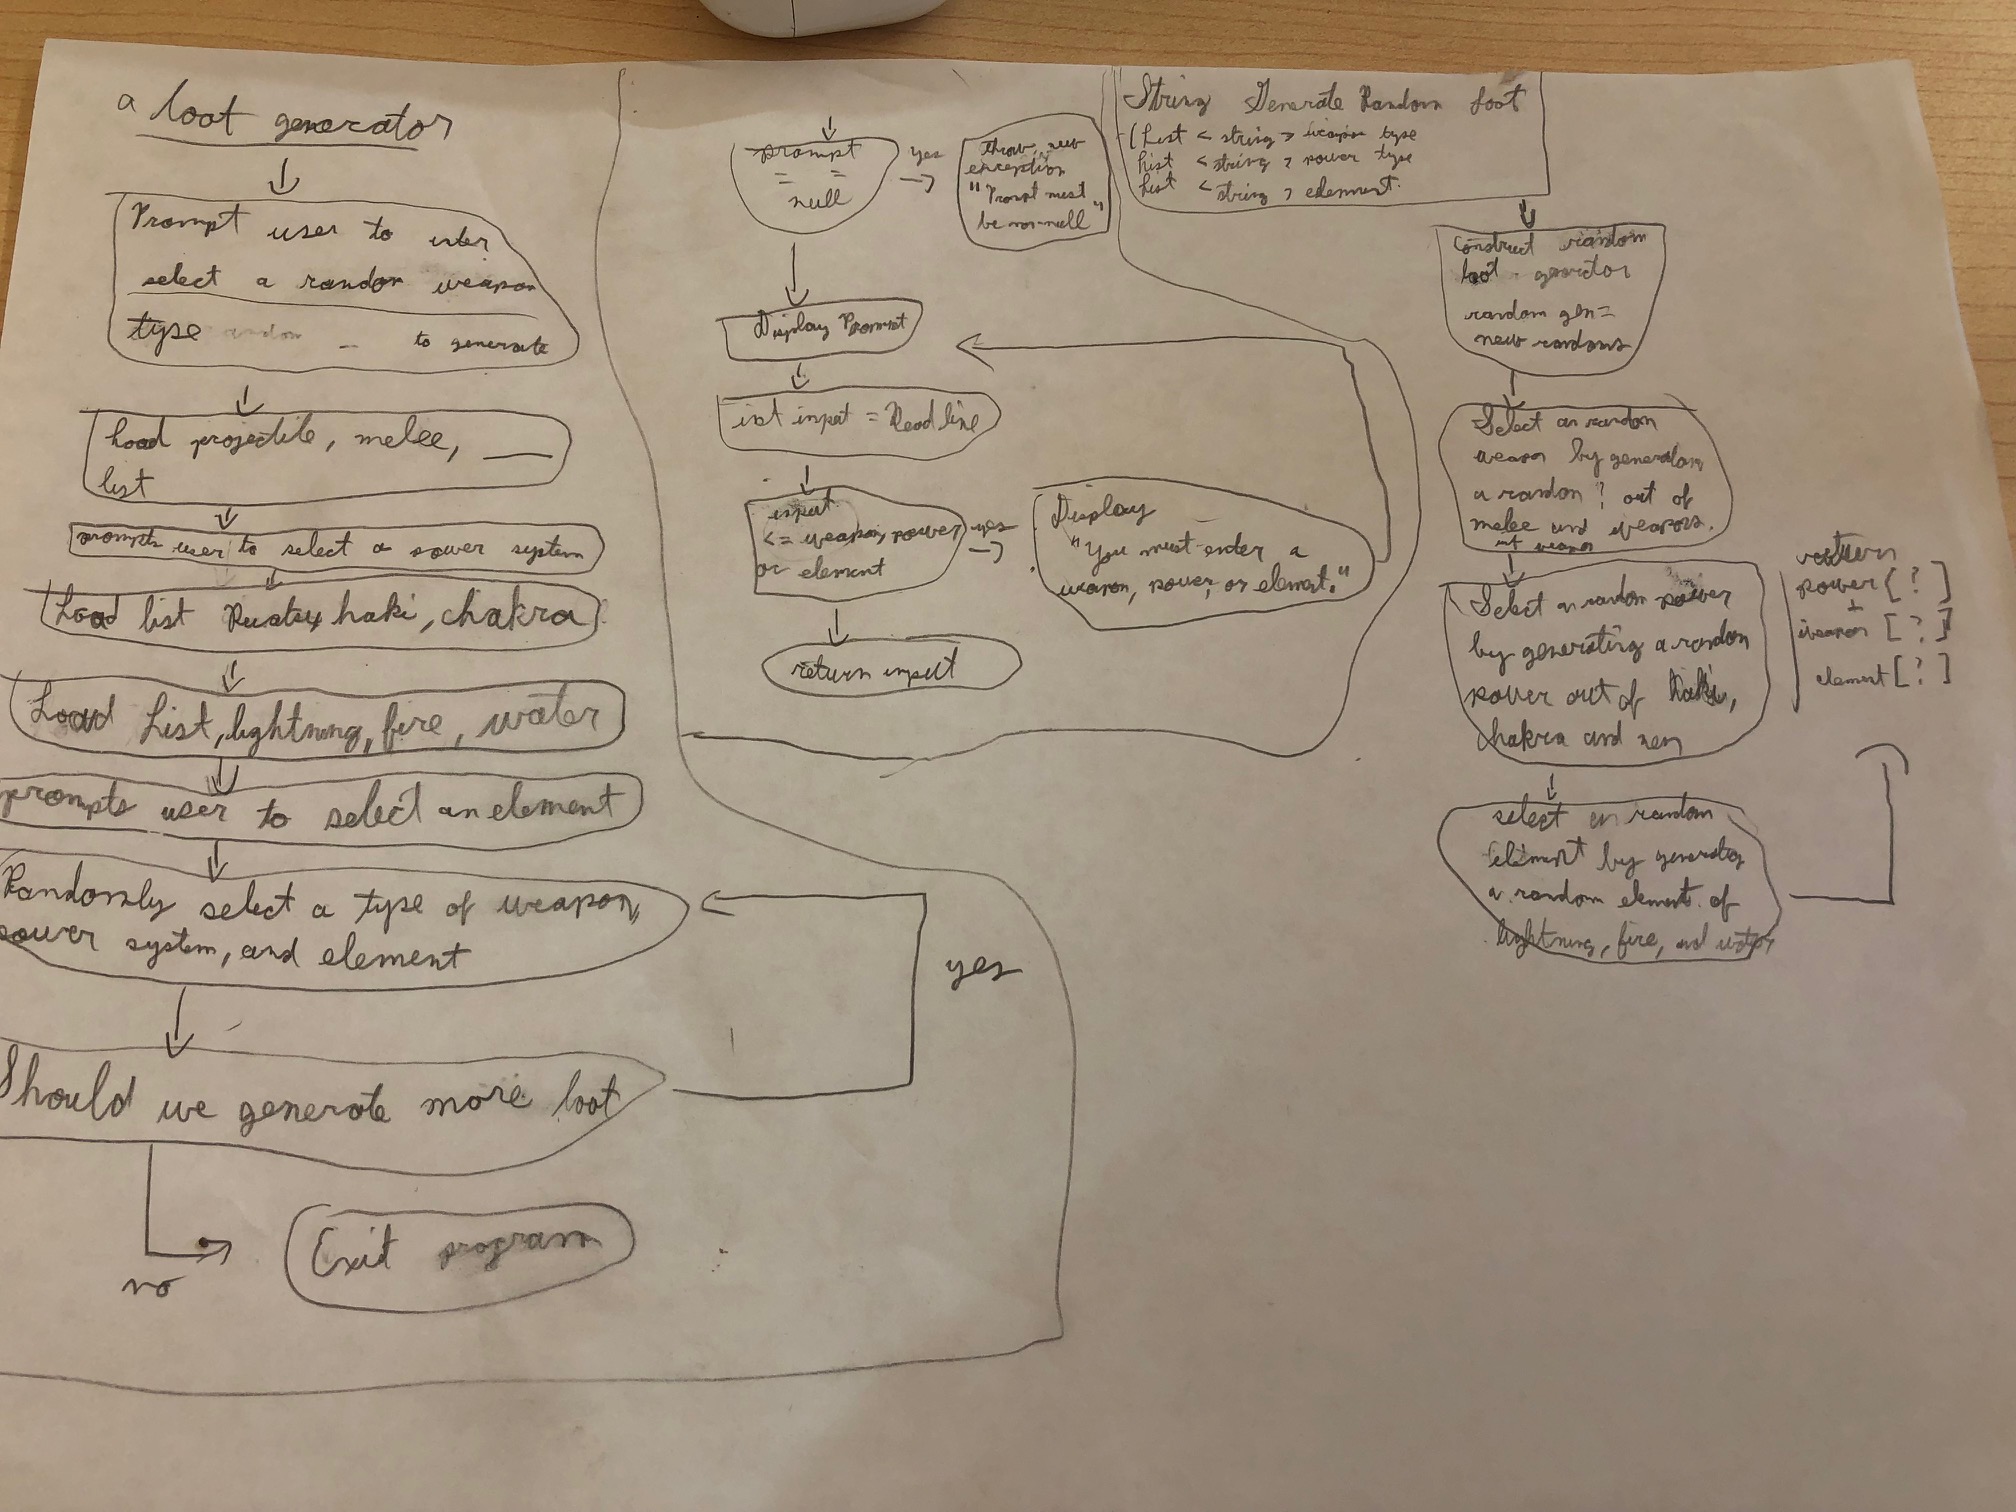 a loot generator
Prompt user to enter
select a random weapon
type random - to generate
Load projectile, melee, __
list
prompts user to select a power system
Load list Dustory, haki, chakra
Load List, lightning, fire, water
prompts user to select an element
Randomly select a type of weapon,
power system, and element
Should we generate more loot
no
Exit program
yes
prompt
=
=
null
yes
throw new
exception
"Prompt must
be non-null"
Display Prompt
int input = Readline
input
<= weapon, power
or element
yes
Display
"You must enter a
weapon, power, or element."
return input
String Generate Random loot
(List <string> weapon type
List <string> power type
List <string> element.
Construct random
loot generator
random gen =
new random
Select a random
weapon by generation
a random ? out of
melee and weapons.
Select a random power
by generating a random
power out of Haki,
chakra and nen
select a random
element by generation
a random element of
lightning, fire, and water
return
power [?]
+
weapon [?]
element [?]